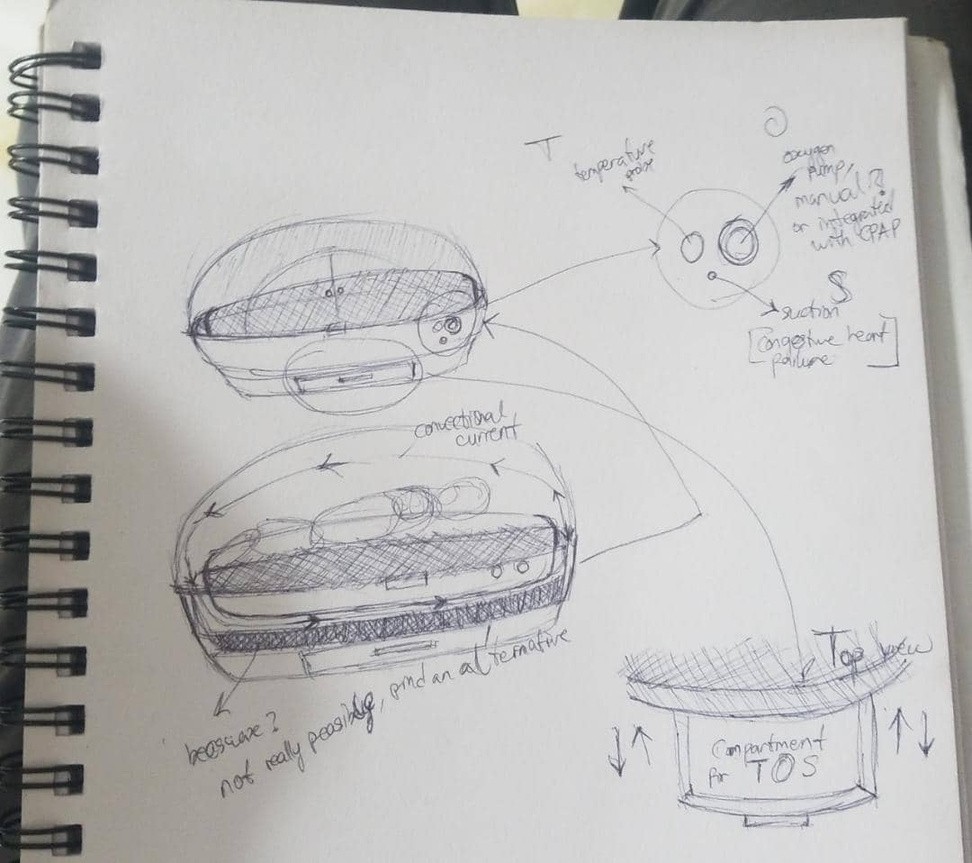 T
temperature
probe
O
oxygen
pump,
manual?
or integrated
with CPAP
S
suction
[Congestive heart
failure]
convectional
current
Top view
not really feasible, find an alternative
Compartment
for TOS